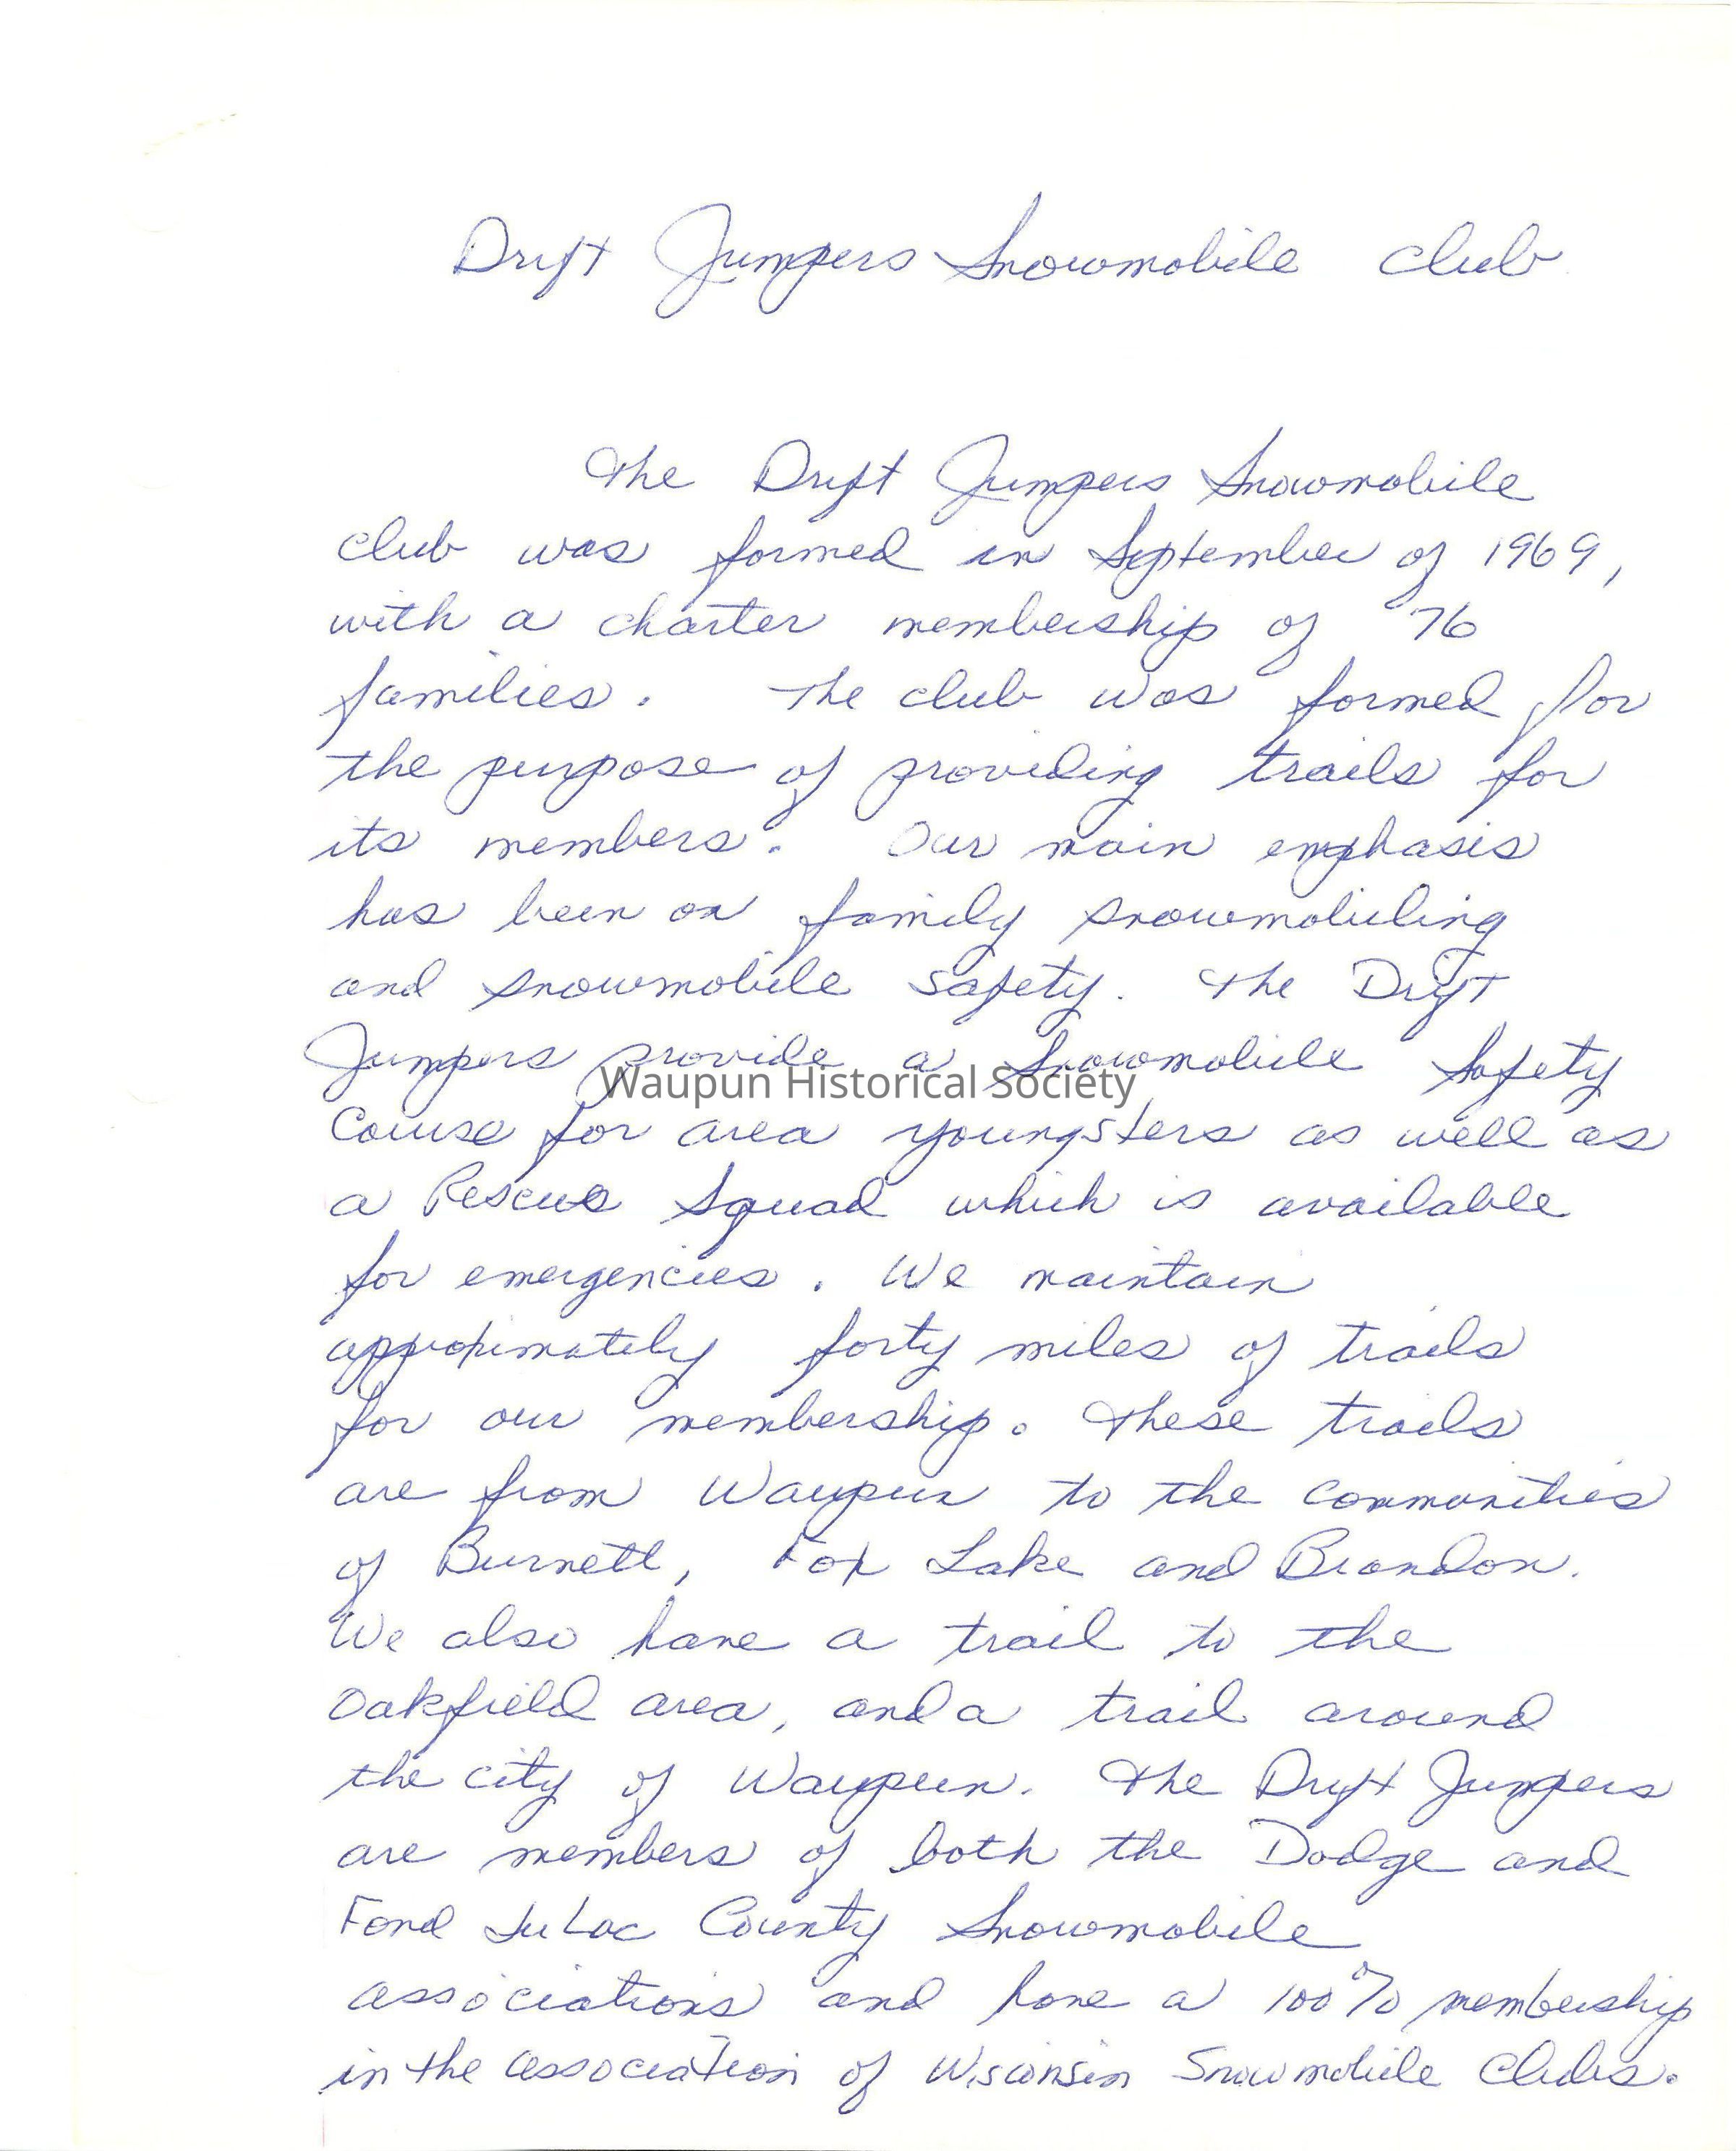 Drift Jumpers Snowmobile Club
The Drift Jumpers Snowmobile
Club was formed in September of 1969,
with a charter membership of 76
families. The club was formed for
the purpose of providing trails for
its members. Our main emphasis
has been on family snowmobiling
and snowmobile safety. The Drift
Jumpers provide a Snowmobile Safety
Waupun Historical Society
Course for area youngsters as well as
a Rescue Squad which is available
for emergencies. We maintain
approximately forty miles of trails
for our membership. These trails
are from Waupun to the communities
of Burnett, Fox Lake and Brandon.
We also have a trail to the
Oakfield area, and a trail around
the city of Waupun. The Drift Jumpers
are members of both the Dodge and
Fond du Lac County Snowmobile
associations and have a 100% membership
in the association of Wisconsin Snowmobile Clubs.